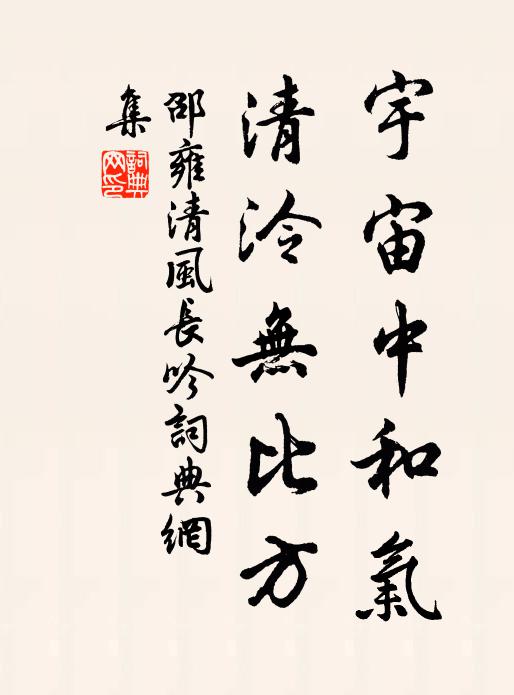 宇宙中和氣
清泠無比方
邵雍清風長吟詞典網
集
詞典
网印